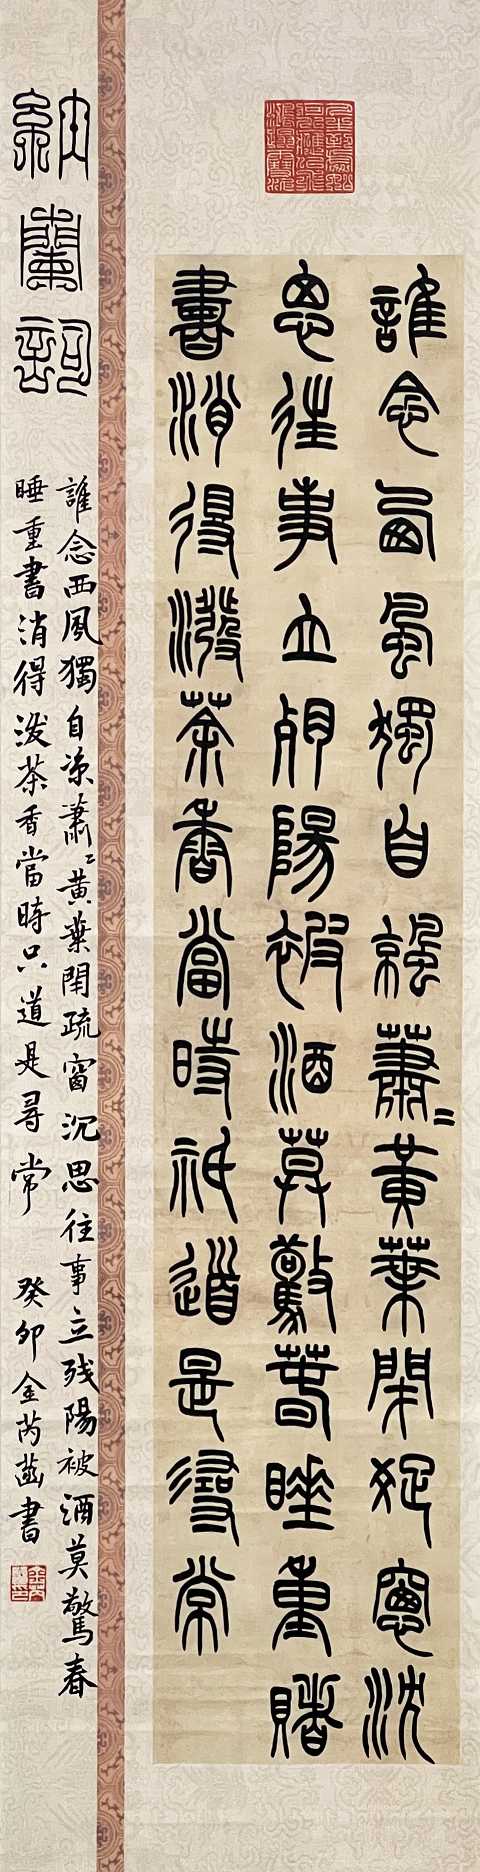 誰念西風獨自涼蕭〻黃葉閉疏窗沈
思往事立殘陽被酒莫驚春睡重賭
書消得潑茶香當時祇道是尋常
納蘭詞
誰念西風獨自涼蕭〻黃葉閉疏窗沉思往事立残陽被酒莫驚春
睡重書消得潑茶香當時只道是尋常 癸卯金芮菡書